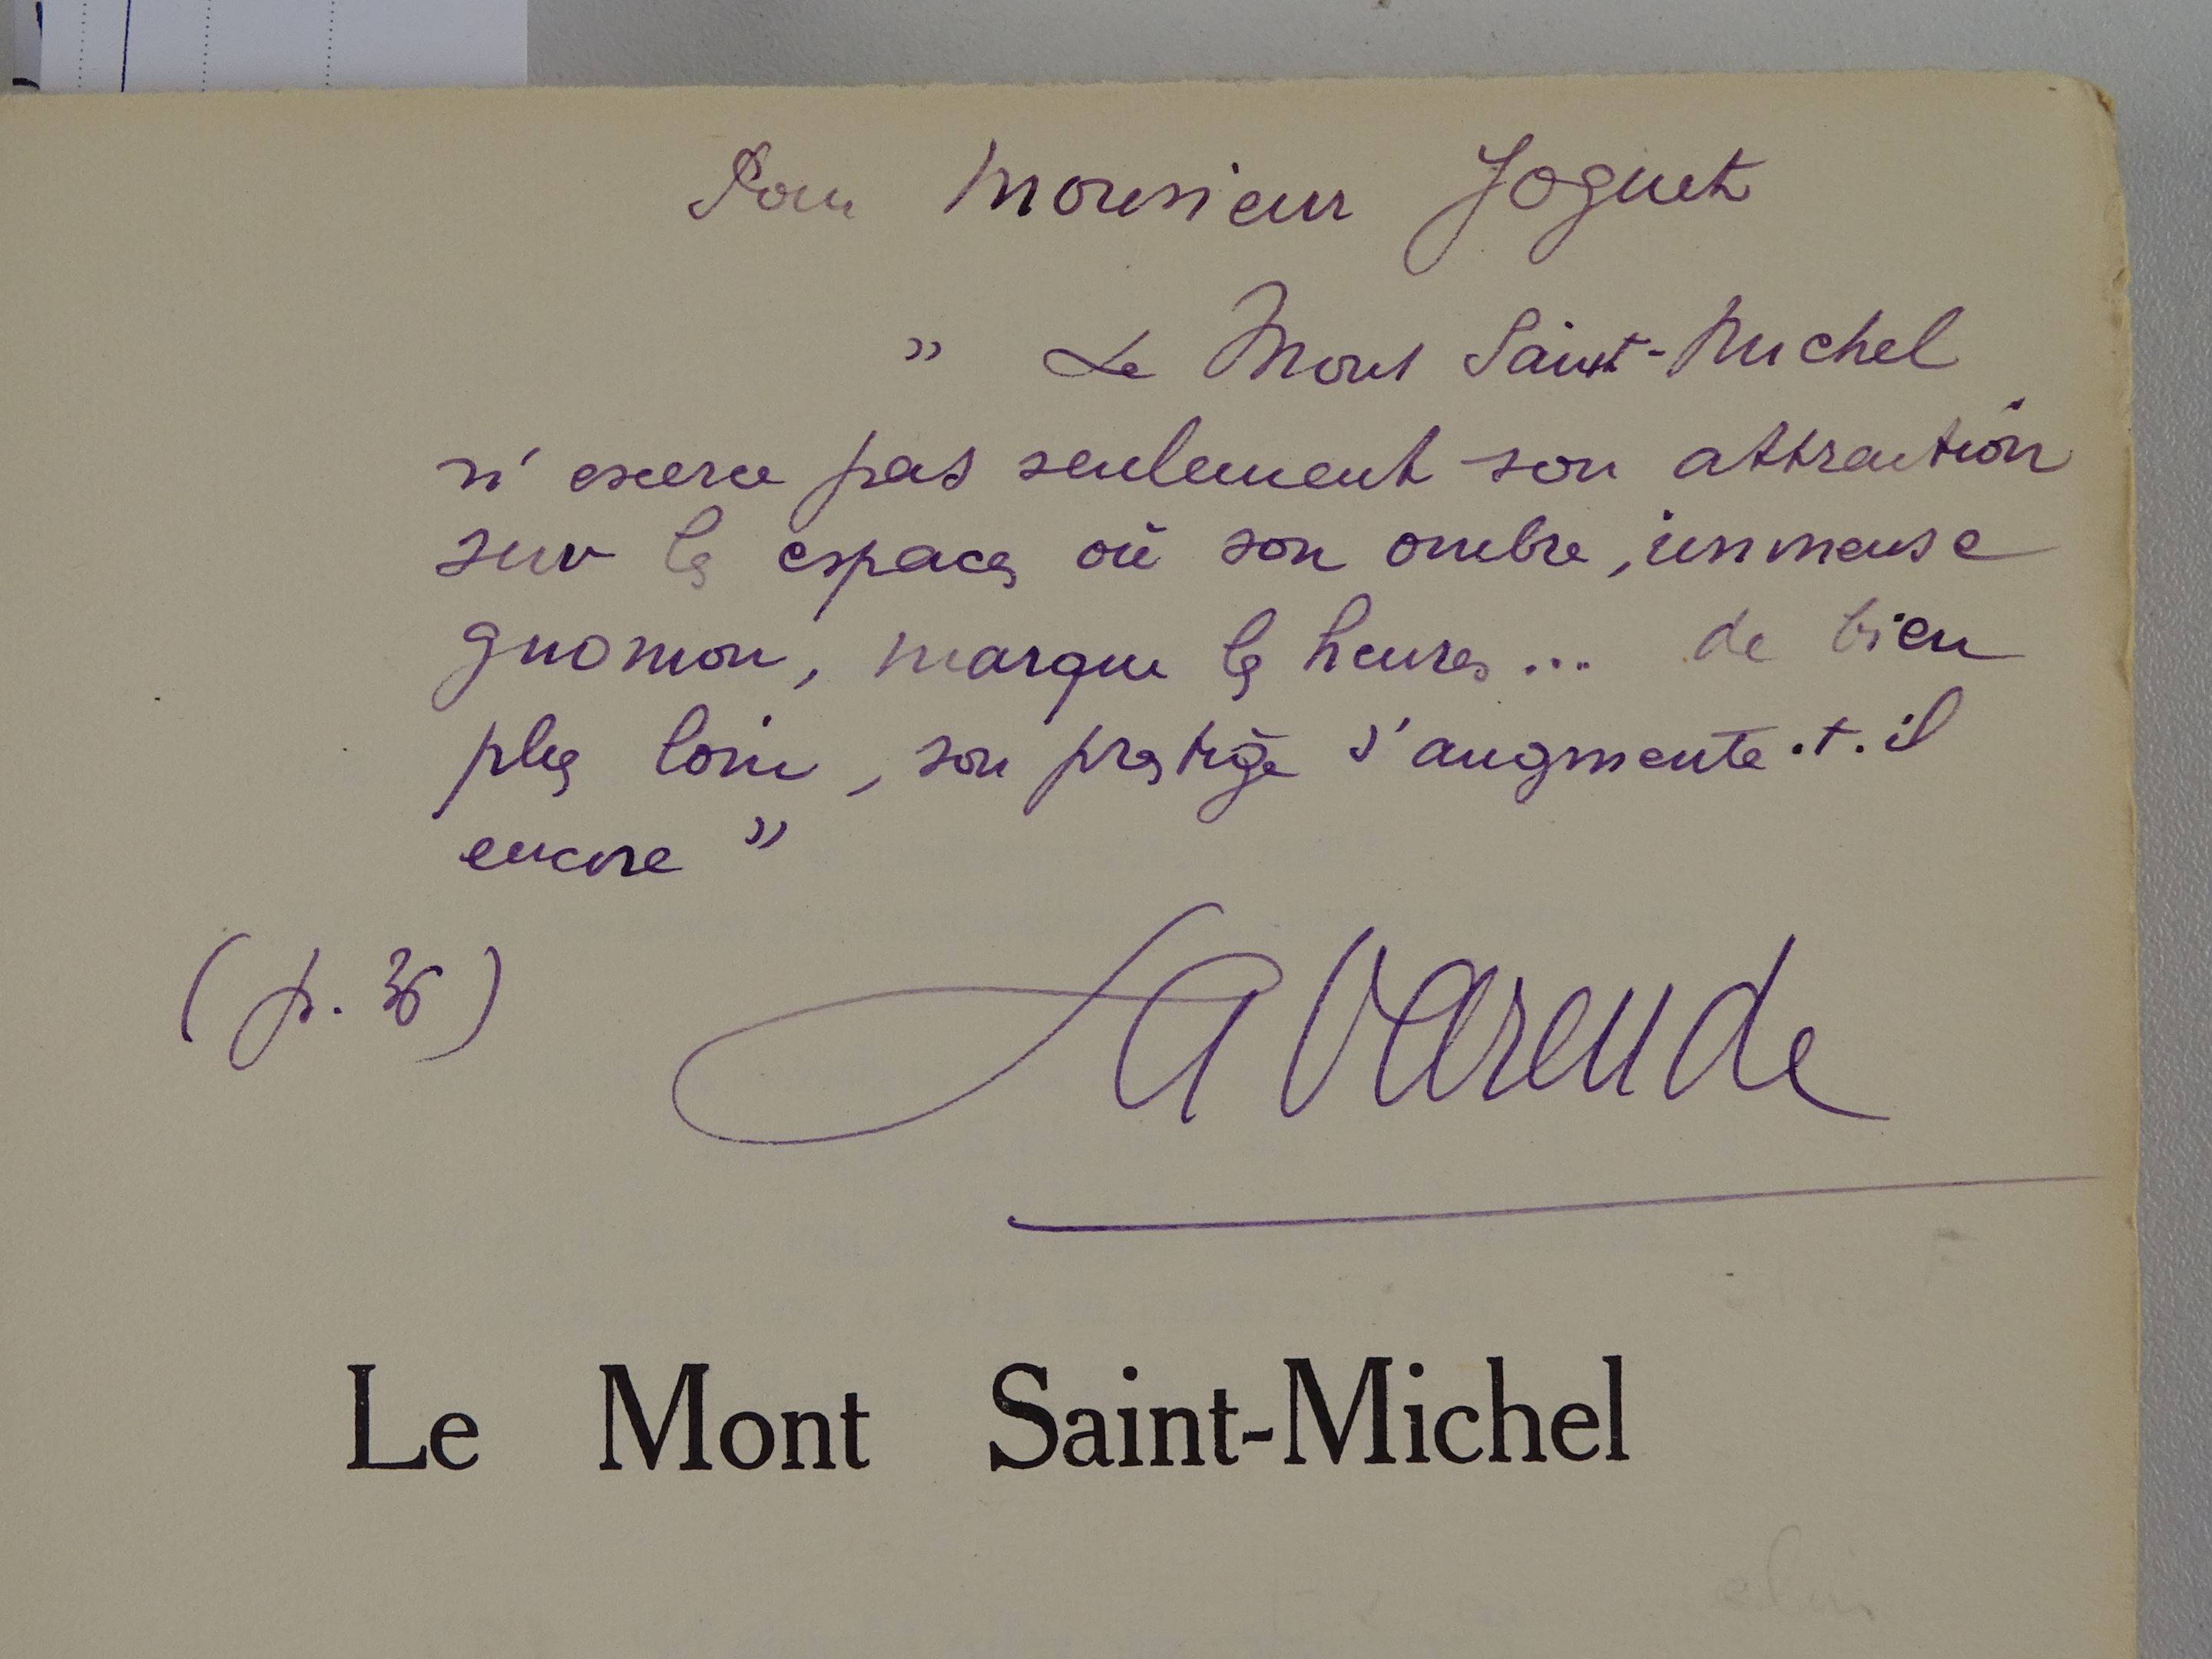 Pour Monsieur Joguet
" Le Mont Saint-Michel
n'exerce pas seulement son attraction
sur les espaces où son ombre, immense
gnomon, marque les heures... de bien
plus loin, son prestige s'augmente.t.il
encore "
(p. 36)
La Varende
Le Mont Saint-Michel